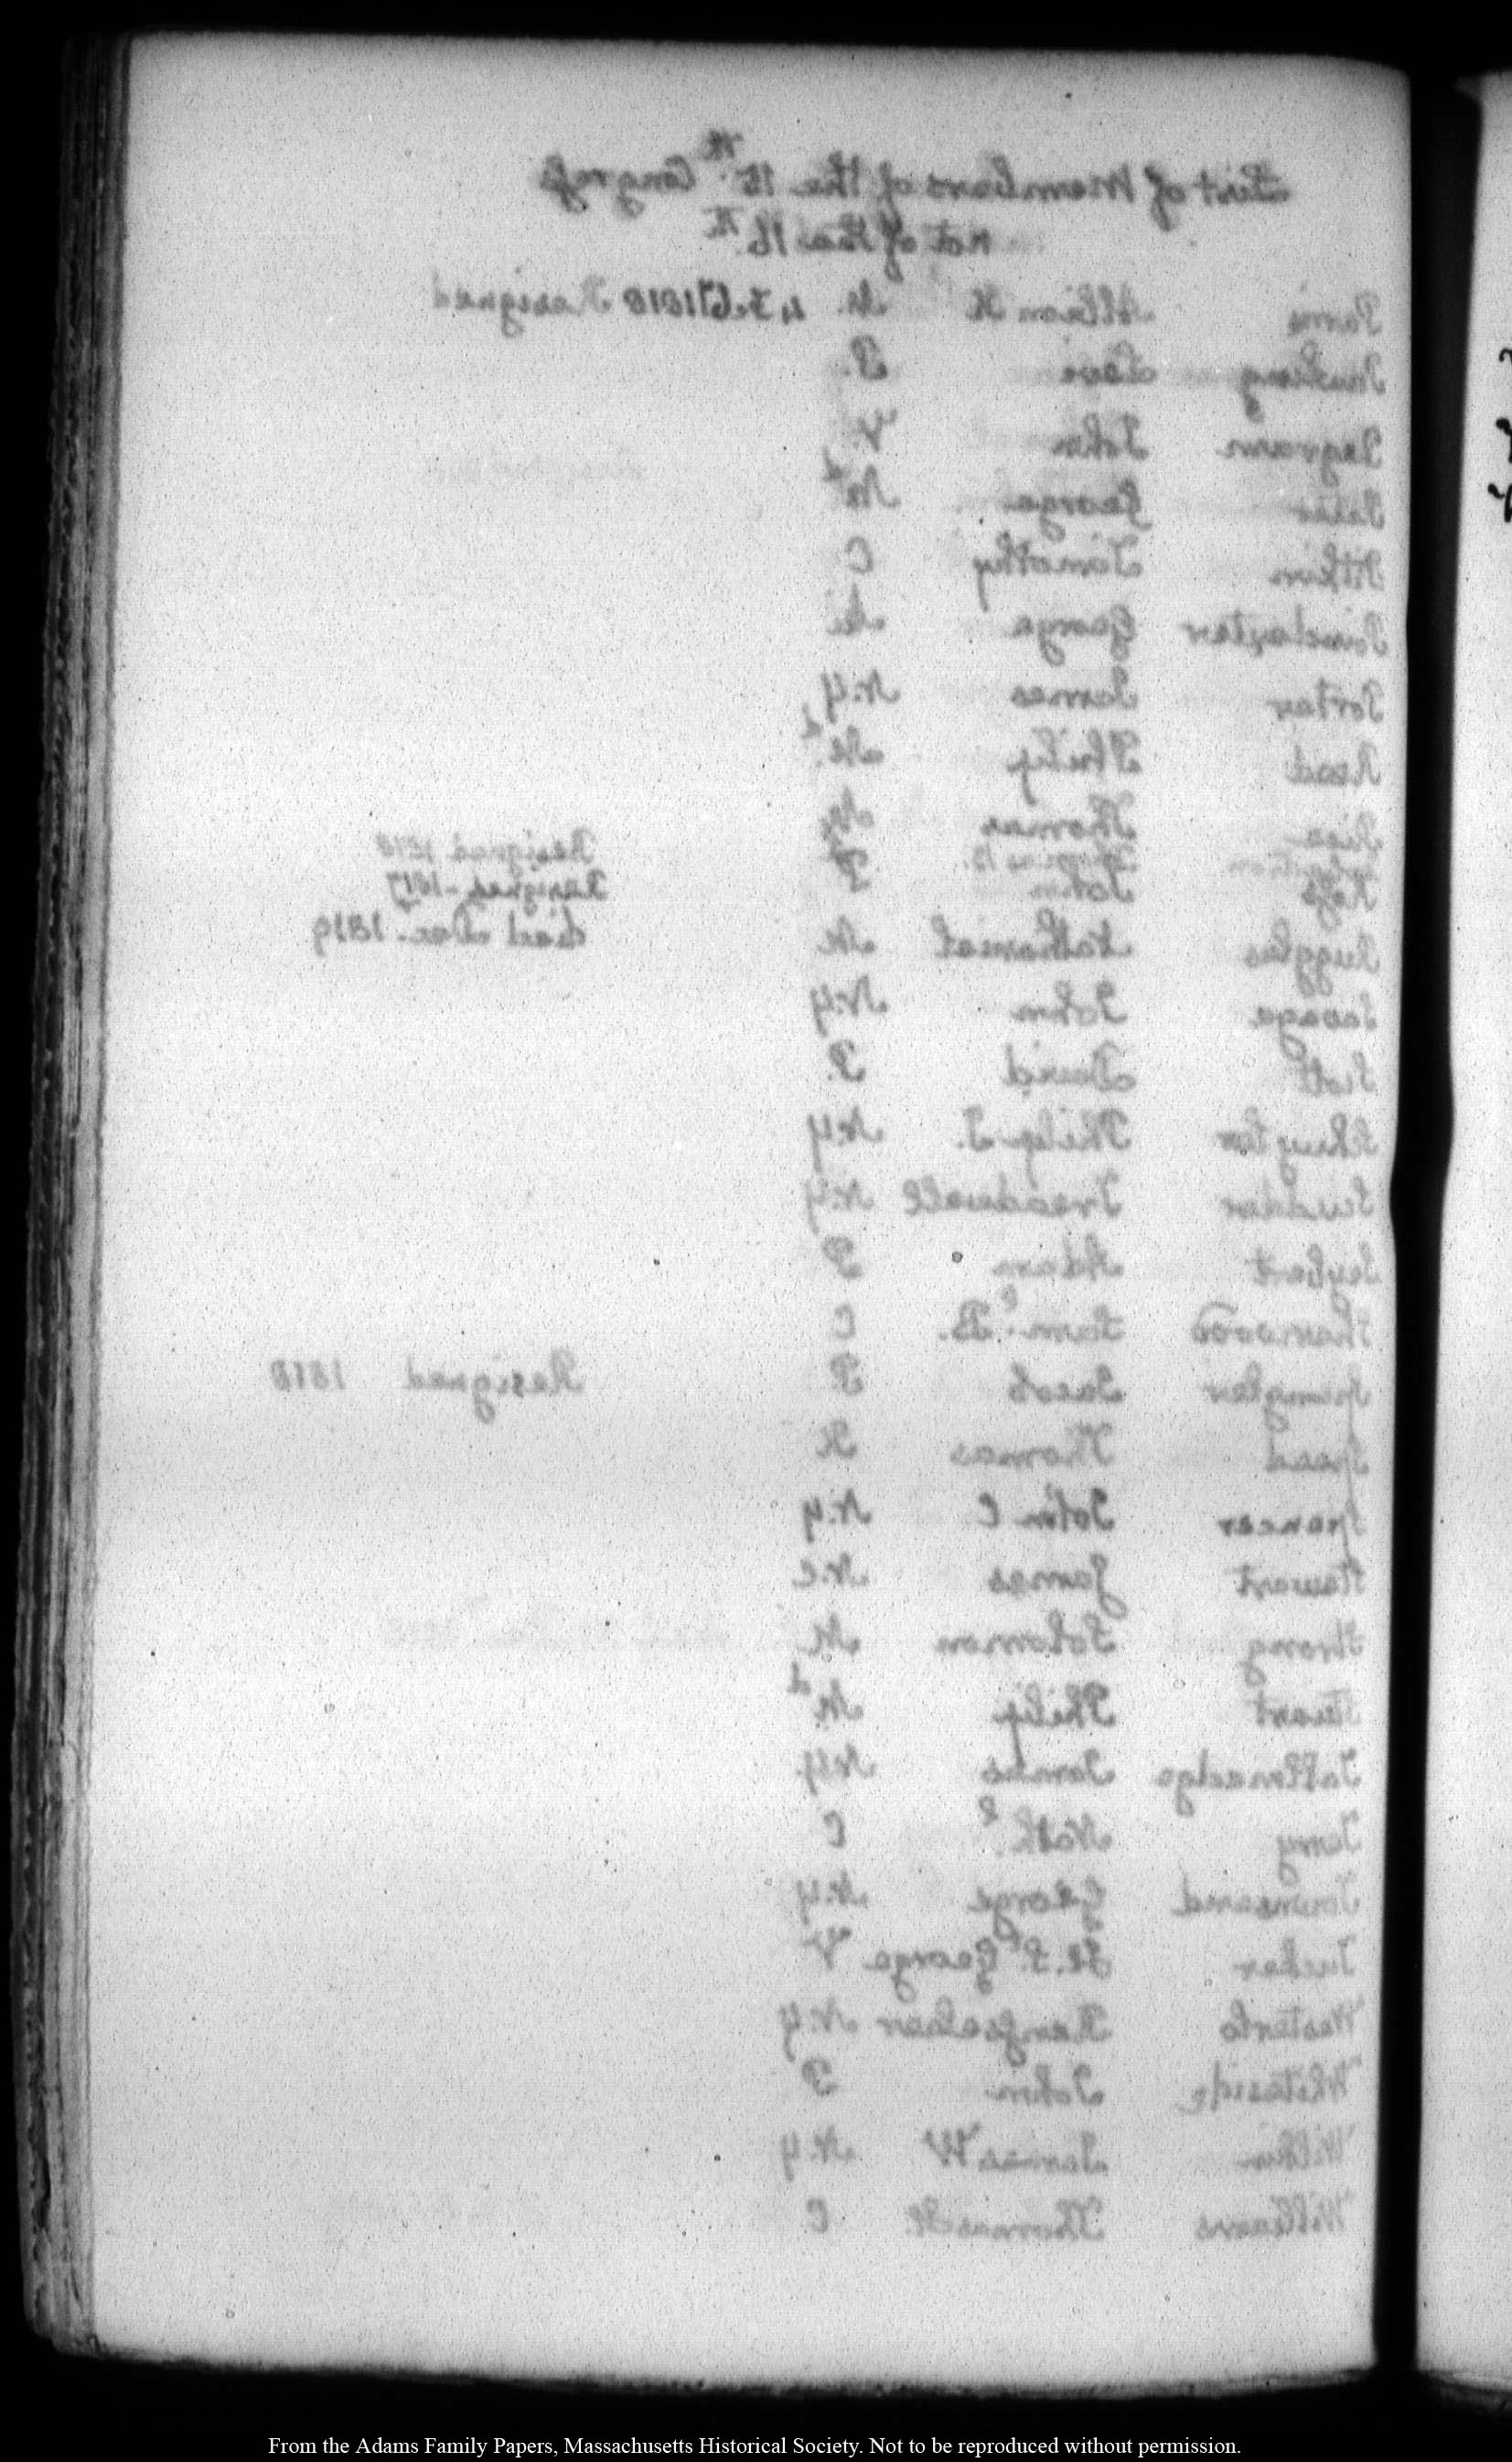 List of Members of the 15th Congress
not of the 16th
Parris Albion K M. Resigned
Pawling Levi P.
Pegram John V.
Peter George Md
Pitkin Timothy C
Poindexter George Mi
Porter James N.Y
Reed Philip Md
Rice Thomas
Robertson Thomas B. Resigned 1818
Ross John P Resigned - 1817
Ruggles Nathaniel M died Dec. 1819
Savage John N.Y
Scott David P.
Schuyler Philip J. N.Y
Scudder Treadwell N.Y
Seybert Adam P
Sherwood Saml. B. C
Spangler Jacob P. Resigned 1818
Speed Thomas K
Spencer John C N.Y
Stewart James N.C
Strong Solomon M
Stuart Philip Md
Tallmadge James N.Y
Terry Nathl. C
Townsend George N.Y
Tucker H. St. George V
Westerlo Rensselaer N.Y
Whiteside John P
Wilkin James W N.Y
Williams Thomas S. C
From the Adams Family Papers, Massachusetts Historical Society. Not to be reproduced without permission.